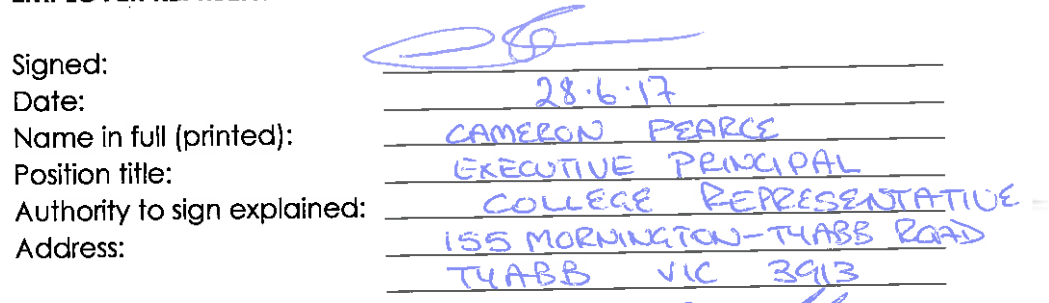 Signed:
Date: 28.6.17
Name in full (printed): CAMERON PEARCE
Position title: EXECUTIVE PRINCIPAL
Authority to sign explained: COLLEGE REPRESENTATIVE
Address: 155 MORNINGTON-TYABB ROAD
TYABB VIC 3913